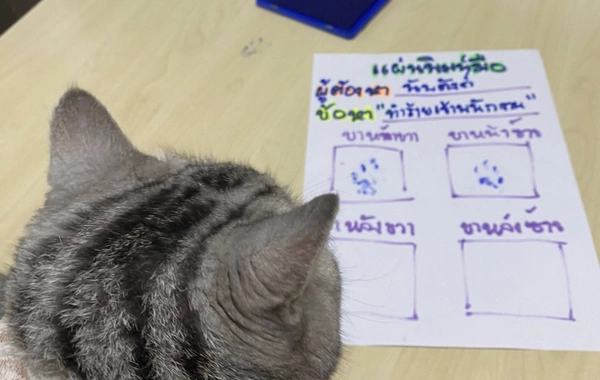 แผ่นพิมพ์มือ
ผู้ต้องหา นับตังค์
ข้อหา "ทำร้ายเจ้าพนักงาน"
ขาหน้าขวา ขาหน้าซ้าย
าหลังขวา ขาหลังซ้าย